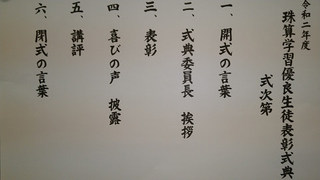 令和二年度
珠算学習優良生徒表彰式典
式次第
一、開式の言葉
二、式典委員長 挨拶
三、表彰
四、喜びの声 披露
五、講評
六、閉式の言葉